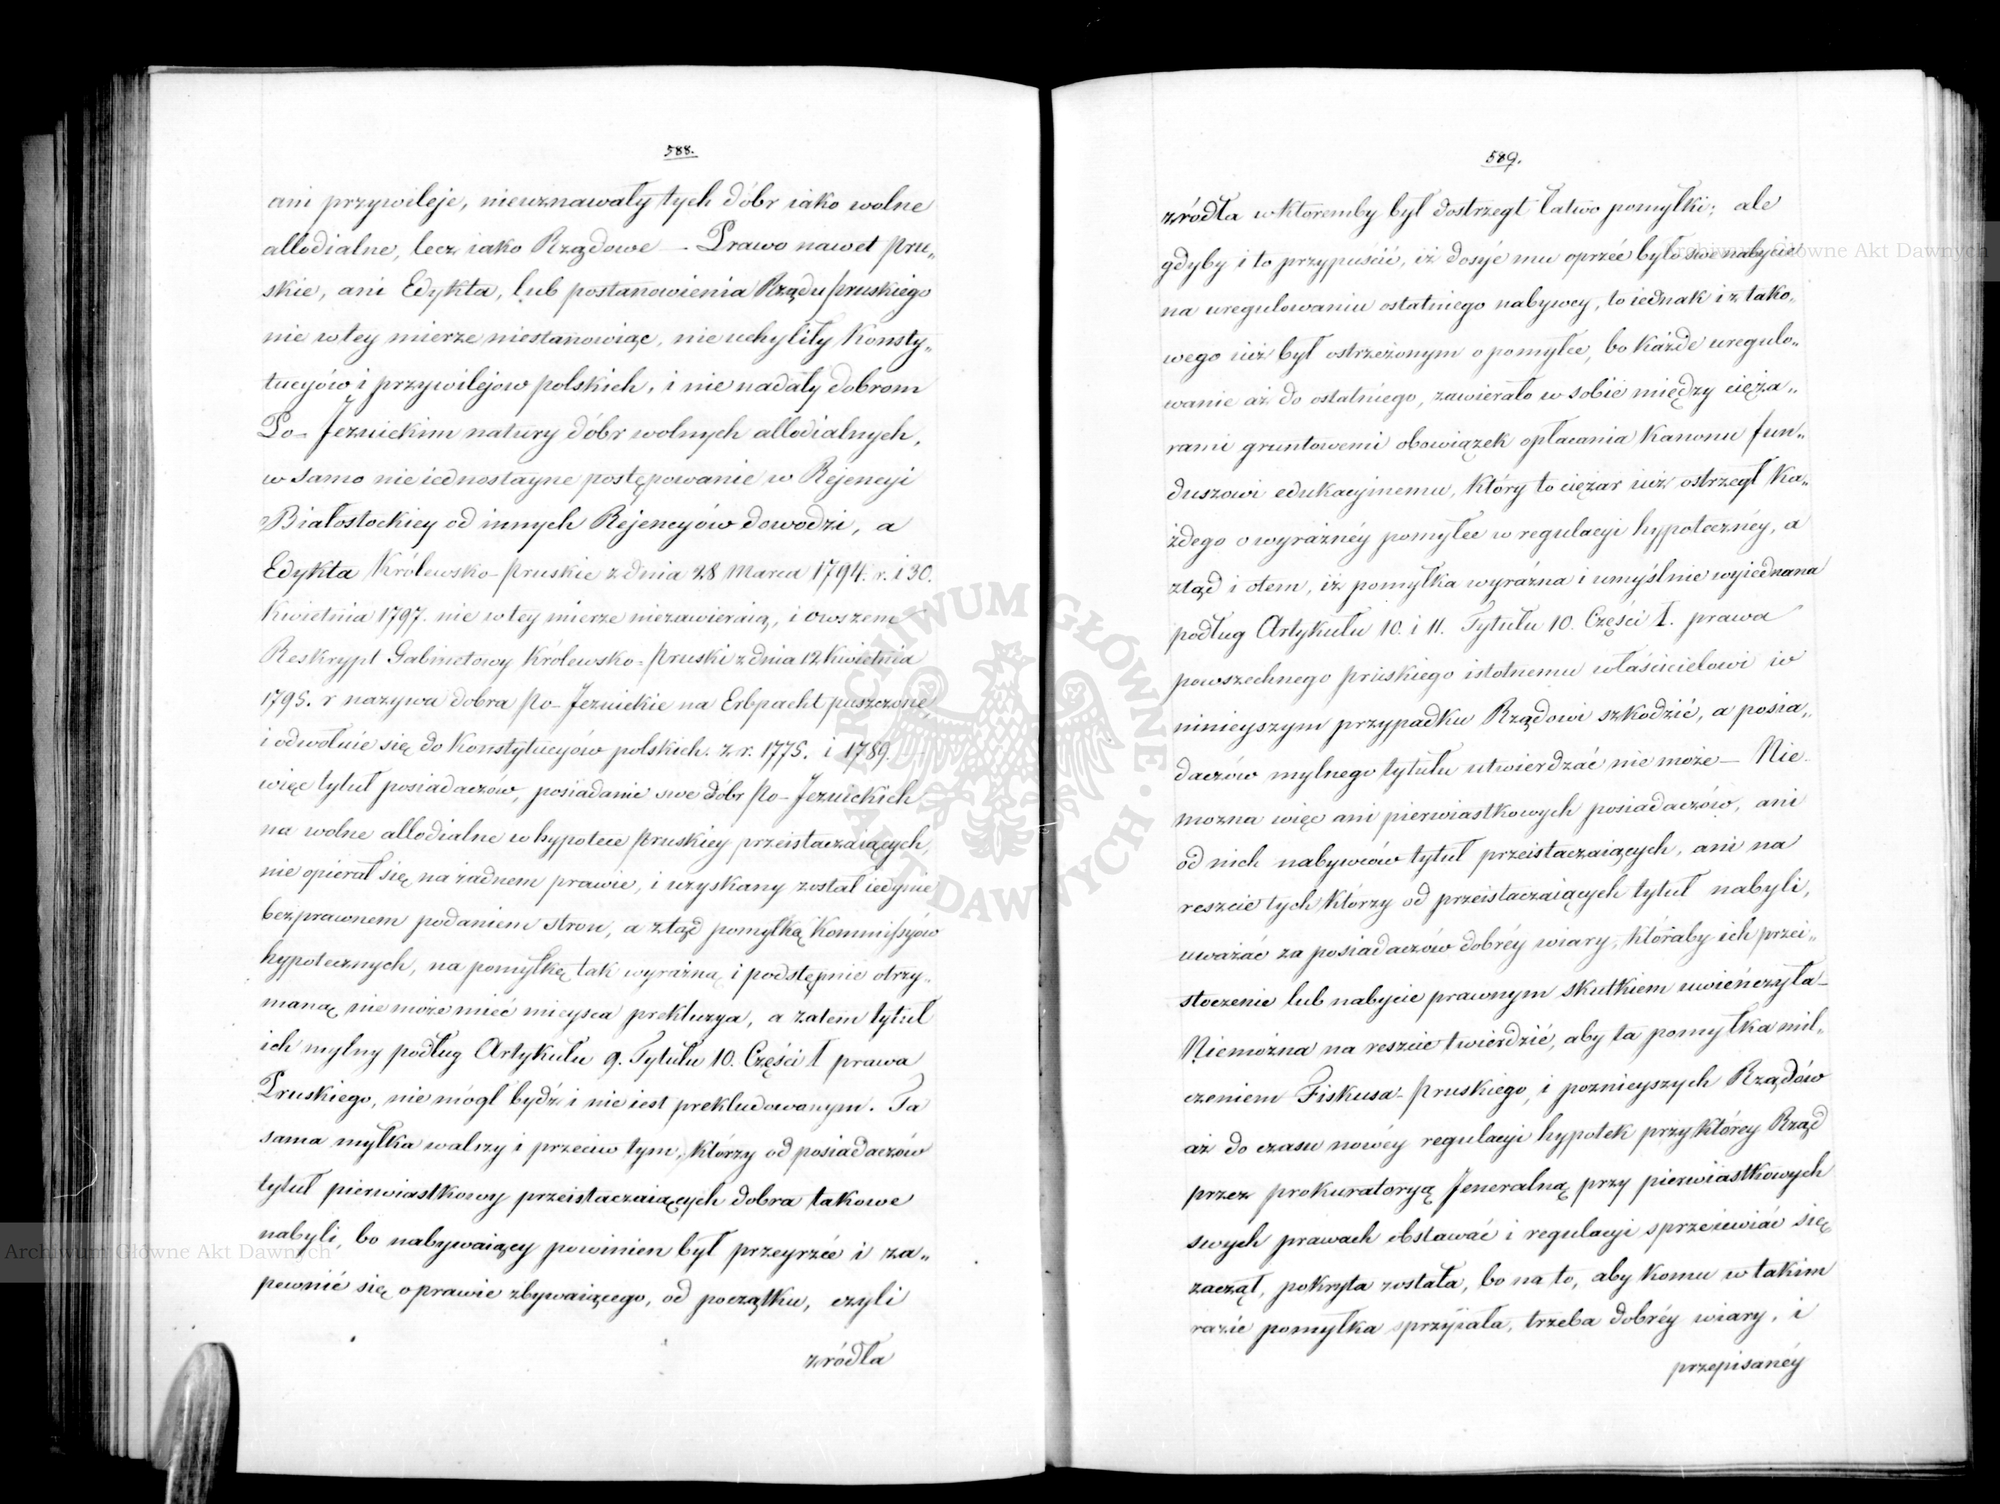 588.
ani przywileje, nieuznawały tych dóbr iako wolne
allodialne, lecz iako Rządowe — Prawo nawet pru„
skie, ani Edykta, lub postanowienia Rządu pruskiego
nie w tey mierze niestanowiąc, nie uchyliły Konsty„
tucyów i przywilejow polskich, i nie nadały dobrom
Po-Jezuickim natury dóbr wolnych allodialnych,
w samo nie iednostayne postępowanie w Rejencyi
Białostockiey od innych Rejencyów dowodzi, a
Edykta Królewsko-pruskie z dnia 28 Marca 1794. r. i 30.
Kwietnia 1797. nie w tey mierze niezawieraią, i owszem
Reskrypt Gabinetowy Królewsko-pruski z dnia 12 Kwietnia
1795. r nazywa dobra po-Jezuickie na Erbpacht puszczone,
i odwołuie się do Konstytucyów polskich. z r. 1775. i 1789. —
więc tytuł posiadaczów, posiadanie swe dóbr po-Jezuickich
na wolne allodialne w hypotece pruskiey przeistaczaiących,
nie opierał się na żadnem prawie, i uzyskany został iedynie
bezprawnem podaniem stron, a ztąd pomyłką Kommissyów
hypotecznych, na pomyłkę tak wyrażną i podstępnie otrzy„
maną nie może mieć mieysca prekluzya, a zatem tytuł
ich mylny podług Artykułu 9. Tytułu 10. Części I prawa
Pruskiego, nie mógł bydź i nie iest prekludowanym. Ta
sama myłka walczy i przeciw tym, którzy od posiadaczów
tytuł pierwiastkowy przeistaczaiących dobra takowe
nabyli, bo nabywaiący powinien był przeyrzéć i za„
pewnić się o prawie zbywaiącego, od początku, czyli
zródła
589.
zródła w ktoremby był dostrzegł łatwo pomyłki; ale
gdyby i to przypuścić, iż dosyć mu oprzéć było swe nabycie
na uregulowaniu ostatniego nabywcy, to iednak i z tako„
wego iuż był ostrzeżonym o pomyłce, bo każde uregulo„
wanie aż do ostatniego, zawierało w sobie między cięża„
rami gruntowemi obowiązek opłacania Kanonu fun„
duszowi edukacyjnemu, który to ciężar iuż ostrzegł Ka„
żdego o wyrażnéy pomyłce w regulacyi hypotecznéy, a
ztąd i o tem, iż pomyłka wyrażna i umyślnie wyiednana
podług Artykułu 10. i 11. Tytułu 10. Części I. prawa
powszechnego pruskiego istotnemu właścicielowi w
ninieyszym przypadku Rządowi szkodzić, a posia„
daczów mylnego tytułu utwierdzać nie może — Nie-
mozna więc ani pierwiastkowych posiadaczów, ani
od nich nabywców tytuł przeistaczaiących, ani na
reszcie tych którzy od przeistaczaiących tytuł nabyli,
uważać za posiadaczów dobréy wiary, któraby ich przei„
stoczenie lub nabycie prawnym skutkiem uwieńczyła —
Niemożna na reszcie twierdzić, aby ta pomyłka mil„
czeniem Fiskusa-pruskiego, i poznieyszych Rządów
aż do czasu nowéy regulacyi hypotek przy któréy Rząd
przez prokuratoryą Jeneralną przy pierwiastkowych
swych prawach obstawać i regulacyi sprzeciwiać się
zaczął, pokryta została, bo na to, aby komu w takim
razie pomyłka sprzyiała, trzeba dobréy wiary, i
przepisanéy
Archiwum Główne Akt Dawnych
Archiwum Główne Akt Dawnych
ARCHIWUM GŁÓWNE • AKT DAWNYCH •